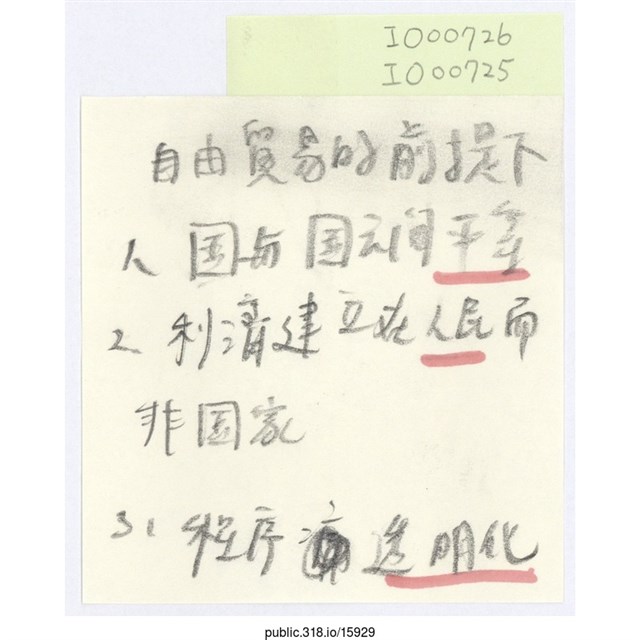 IO00726
IO00725
自由貿易的前提下
1、国与国之间平等
2、利濟建立在人民而
非国家
3、程序透明化
public.318.io/15929